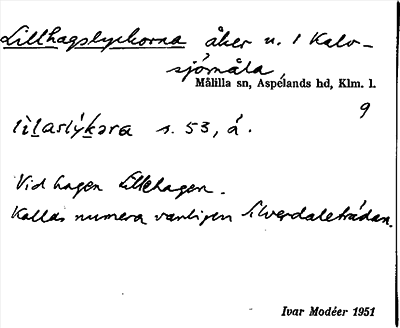 Lillhagslyckorna åker u. 1 Kalv-
sjömåla,
Målilla sn, Aspelands hd, Klm. l.
9
s. 53, å.
Vid hagen Lillehagen.
Kallas numera vanligen Silverdaleträdan.
Ivar Modéer 1951